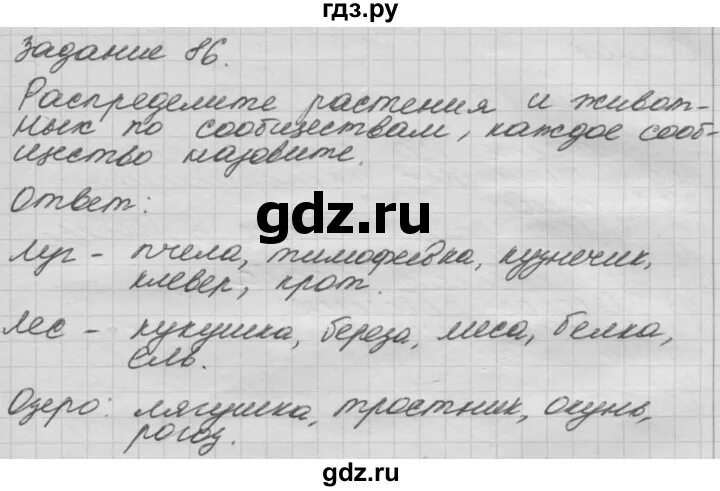 гдз.ру
Задание 86.
Распределите растения и живот-
ных по сообществам, каждое сооб-
щество назовите.
Ответ:
gdz.ru
Луг - пчела, тимофеевка, кузнечик,
клевер, крот.
Лес - кукушка, береза, лиса, белка,
ель.
Озеро: лягушка, тростник, окунь,
рогоз.
gdz.ru